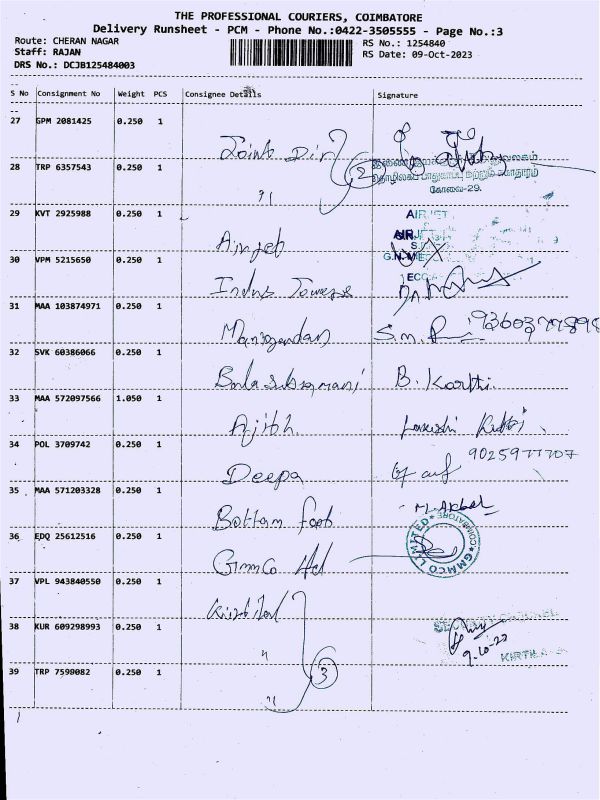 THE PROFESSIONAL COURIERS, COIMBATORE
Delivery Runsheet - PCM - Phone No.:0422-3505555 - Page No.:3
Route: CHERAN NAGAR
RS No.: 1254840
Staff: RAJAN
RS Date: 09-Oct-2023
DRS No.: DCJB125484003
S No Consignment No Weight PCS Consignee Details Signature
27 GPM 2081425 0.250 1
Joint Dir
28 TRP 6357543 0.250 1 " 2
கோவை-29.
29 KVT 2925988 0.250 1
AIRJET
30 VPM 5215650 0.250 1
Indus Towers
31 MAA 103874971 0.250 1
S.m.
32 SVK 60386066 0.250 1
Balasubramani B. Karthi
33 MAA 572097566 1.050 1
Ajith
34 POL 3709742 0.250 1
Deepa
35 MAA 571203328 0.250 1
Bottom foot M. Akbar
36 EDQ 25612516 0.250 1
Gmmco Ltd GMMCO LIMITED * COIMBATORE *
37 VPL 943840550 0.250 1
38 KUR 609298993 0.250 1 "
9-10-23
39 TRP 7598082 0.250 1 " 3